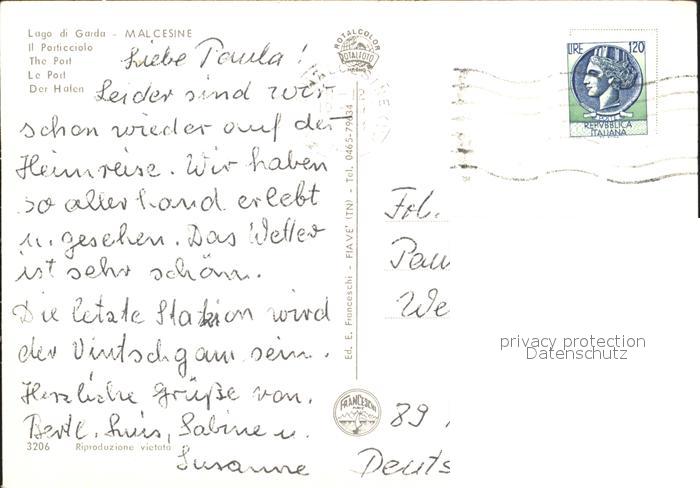 Lago di Garda - MALCESINE
Il Porticciolo
The Port
Le Port
Der Hafen
Liebe Paula!
Leider sind wir
schon wieder auf der
Heimreise. Wir haben
so allerhand erlebt
u. gesehen. Das Wetter
ist sehr schön.
Die letzte Station wird
der Vintschgau sein.
Herzliche Grüße von,
Bertl, Luis, Sabine u.
Susanne
3206 Riproduzione vietata
Ed. E. Franceschi - FIAVE' (TN) - Tel. 0465-79834
ROTALCOLOR
ROTALFOTO
FRANCESCHI
LIRE 120
REPVBBLICA
ITALIANA
Frl.
Pau
We
89
Deuts
privacy protection
Datenschutz